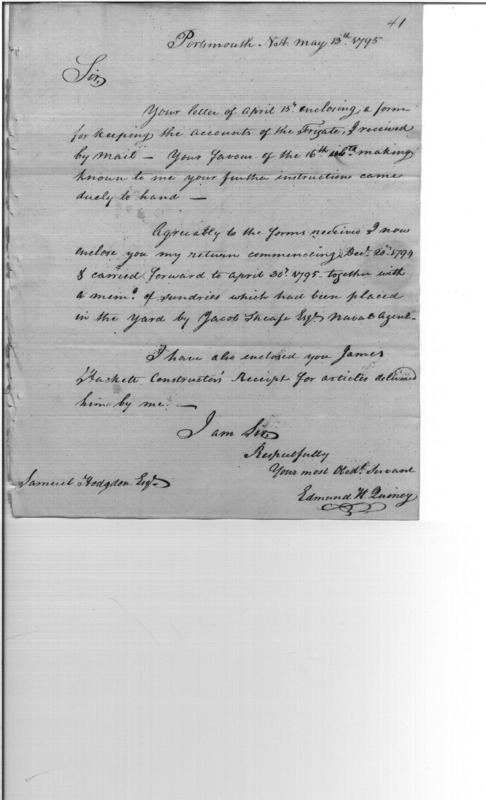 41
Portsmouth N.H. May 13th. 1795
Sir,
Your letter of April 15t. enclosing, a form
for keeping the accounts of the Frigate, I received
by mail — Your favour of the 16th making
known to me your further instructions came
duely to hand —
Agreeably to the forms received I now
enclose you my return commencing Decr. 20th. 1794
& carried forward to April 30t. 1795. together with
a memo. of sundries which had been placed
in the Yard by Jacob Sheafe Esqr. Naval Agent.
I have also enclosed you James
Hacketts Constructor's Receipt for articles delivered
him by me. —
I am Sir
Respectfully
Your most Obedt. Servant
Samuel Hodgdon Esqr.
Edmund H Quincy